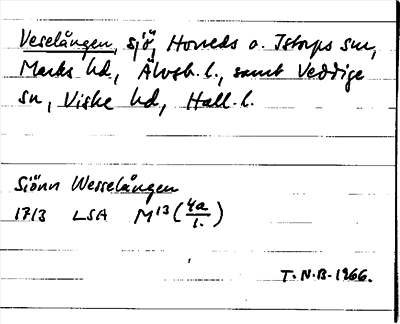 Veselången, sjö, Horreds o. Istorps snr,
Marks hd, Älvsb. l., samt Veddige
sn, Viske hd, Hall. l.
Siönn Wesselången
1713 LSA M13 (4a/1.)
T.N.B-1966.